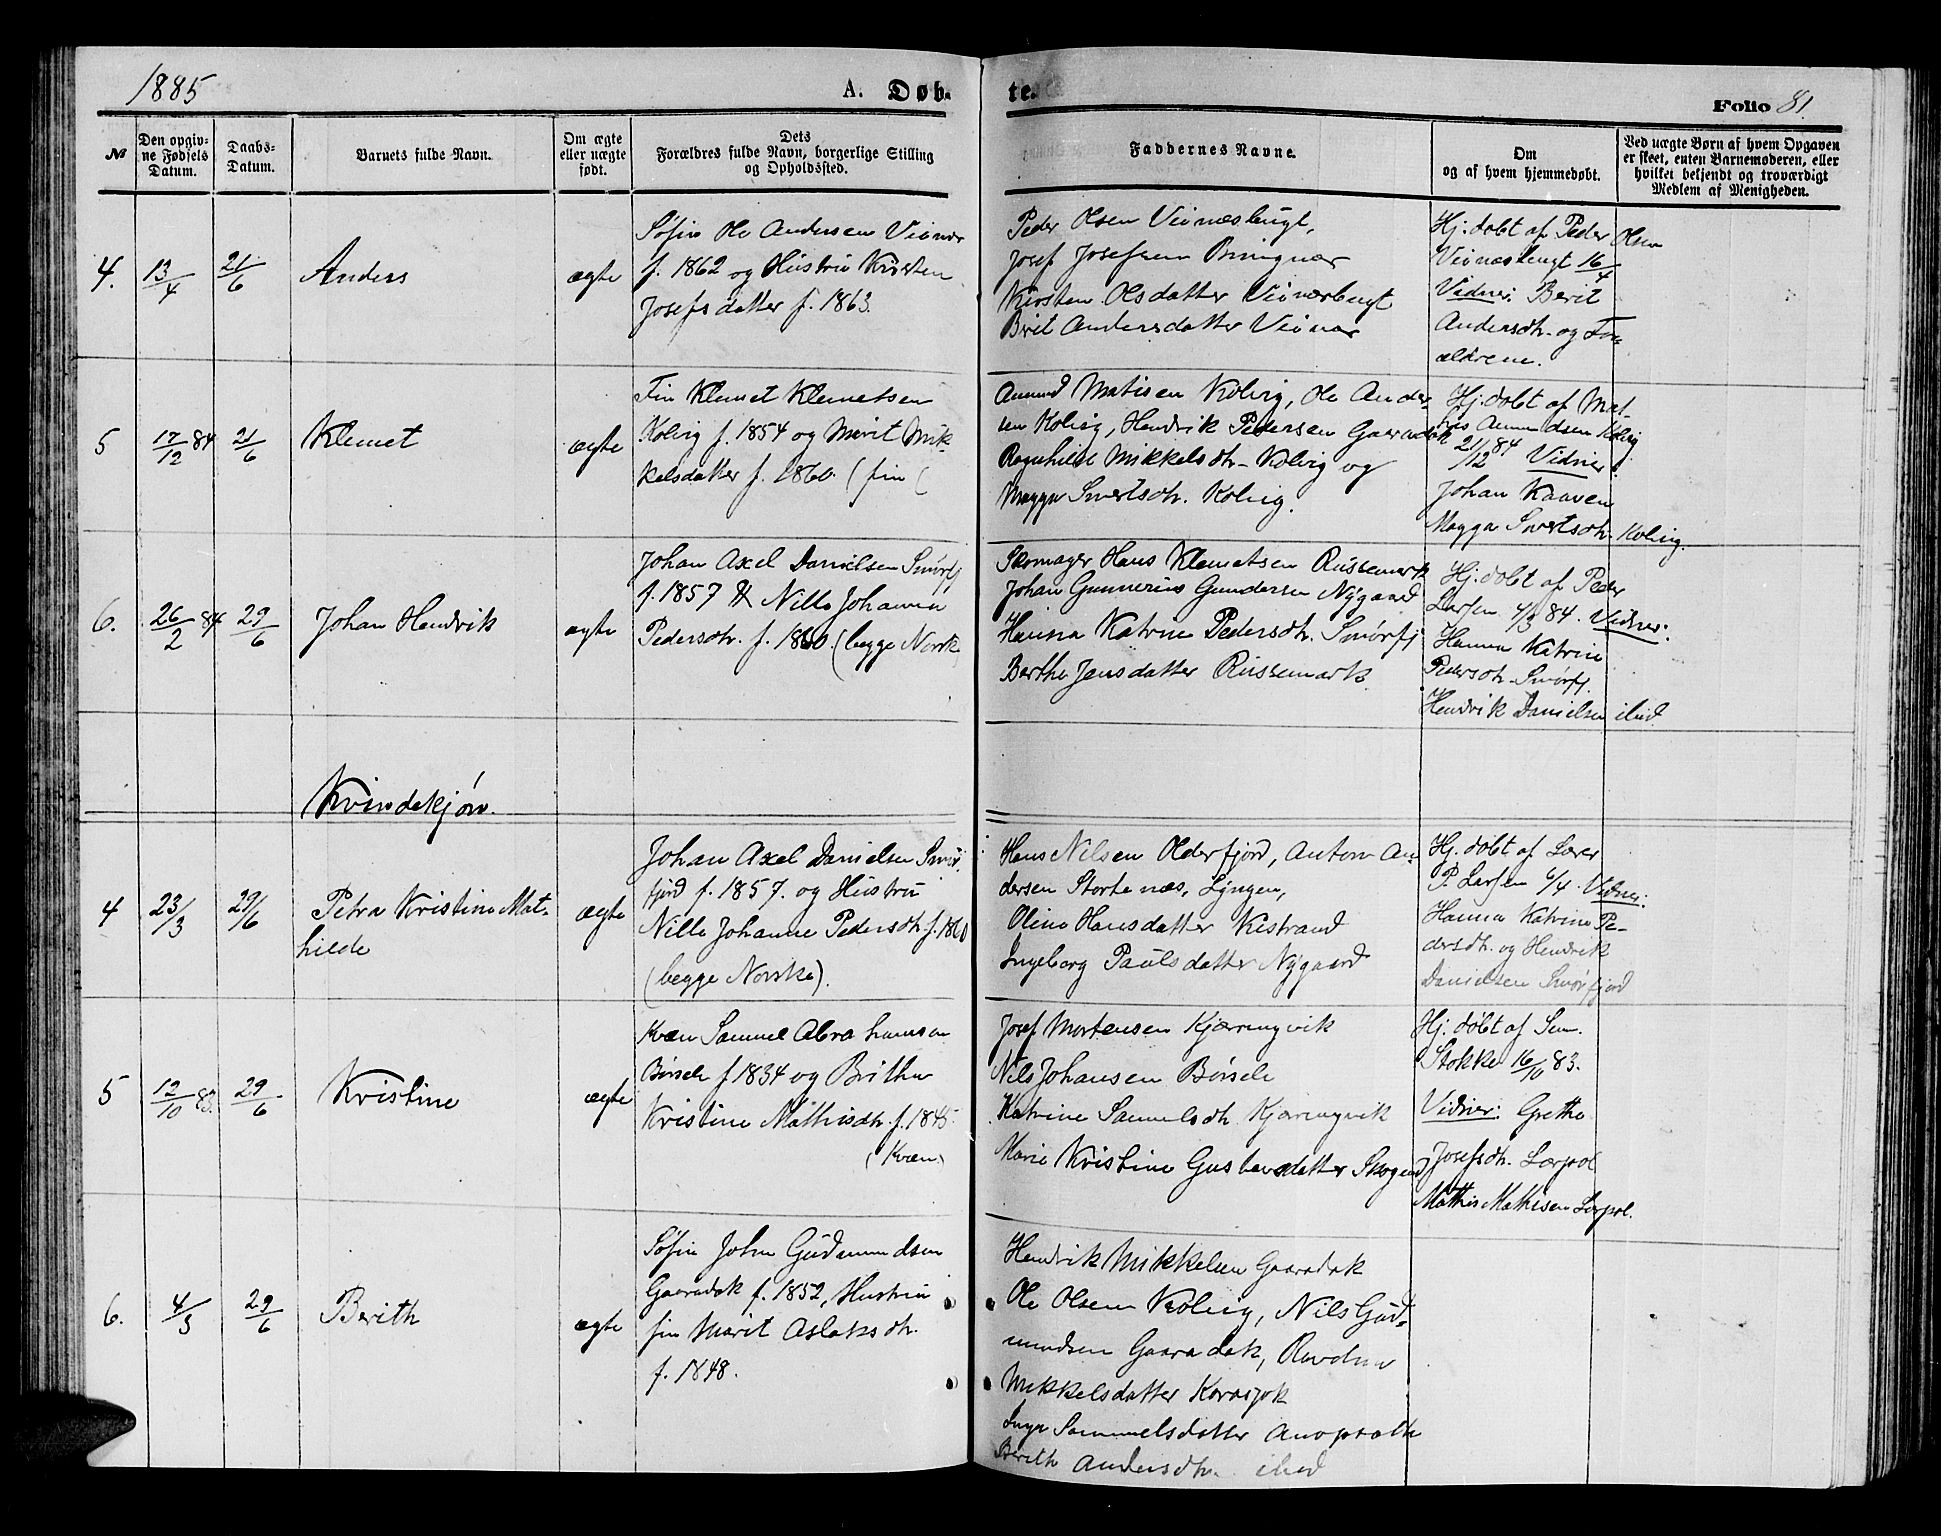 1885
A. Døb-
te.
Folio 81.
№
Den opgiv-
ne Fødsels
Datum.
Daabs-
Datum.
Barnets fulde Navn.
Om ægte
eller uægte
født.
Dets
Forældres fulde Navn, borgerlige Stilling
og Opholdssted.
Faddernes Navne.
Om
og af hvem hjemmedøbt.
Ved uægte Børn af hvem Opgaven
er skeet, enten Barnemoderen, eller
hvilket bekjendt og troværdigt
Medlem af Menigheden.
4.
13/4
21/6
Anders
ægte
Søfin Ole Andersen
f. 1862 og Hustru Kirsten
Josefsdatter f. 1863.
Peder Olsen
Josef Josefsen
Kirsten Olsdatter
Berit Andersdatter
Hj. døbt af Peder Olsen
16/4
Vidner: Berit
Andersdtr. og For-
ældrene.
5
17/12 84
21/6
Klemet
ægte
Fin Klemet Klemetsen
Kolvig f. 1854 og Marit Mik-
kelsdatter f. 1860. (fin(
Amund Matisen Kolvig, Ole Ander-
sen Kolvig, Hendrik Pedersen Gaaradak
Ragnhild Mikkelsdtr. Kolvig og
Magga Smertsdtr. Kolvig.
Hj. døbt af Mat-
his Amundsen Kolvig
21/12 84 Vidner:
Johan Kaaven
Magga Smertsdtr. Kolvig.
6.
26/2 84
29/6
Johan Hendrik
ægte
Johan Axel Danielsen Smørfj
f. 1857 & Nille Johanna
Pedersdtr. f. 1860. (begge Norsk)
Skomager Hans Klemetsen Russemark
Johan Gunnerius Gundersen Nygaard
Hanna Katrine Pedersdtr. Smørfj
Berthe Jensdatter Russemark.
Hj. døbt af Peder
Larsen 4/3 84. Vidner:
Hanna Katrine
Pedersdtr. Smørfj.
Hendrik Danielsen ibid
Kvindekjøn.
4
23/3
29/6
Petra Kristine Mat-
hilde
ægte
Johan Axel Danielsen Smør-
fjord f. 1857. og Hustru
Nille Johanne Pedersdtr. f. 1860
(begge Norske).
Hans Nilsen Olderfjord, Anton An-
dersen Stortenæs, Lyngen,
Oline Hansdatter Kistrand
Ingeborg Paulsdatter Nygaard
Hj. døbt af Lærer
P. Larsen 6/4. Vidner:
Hanna Katrine Pe-
dersdtr. og Hendrik
Danielsen Smørfjord
5
12/10 83.
29/6
Kristine
ægte
Kvæn Samuel Abrahamsen
Børsele f. 1834 og Britha
Kristine Mathisdtr. f. 1845
(Kvæn)
Josef Mortensen Kjærringvik
Nils Johansen Børsele
Katrine Samuelsdtr. Kjærringvik
Marie Kristine Gustavsdatter
Hj. døbt af Sem.
Stokke 16/10 83.
Vidner: Grethe
Josefsdtr. Lærpol
Mathis Mathisen Lærpol.
6.
4/3
29/6
Berith
ægte
Søfin John Gudmundsen
Gaaradak f. 1852, Hustru
fin Marit Aslaksdtr.
f. 1848.
Hendrik Mikkelsen Gaaradak
Ole Olsen Kolvig, Nils Gud-
mundsen Gaaradak,
Mikkelsdatter Karasjok
Inga Sammelsdatter
Berith Andersdtr. ibid